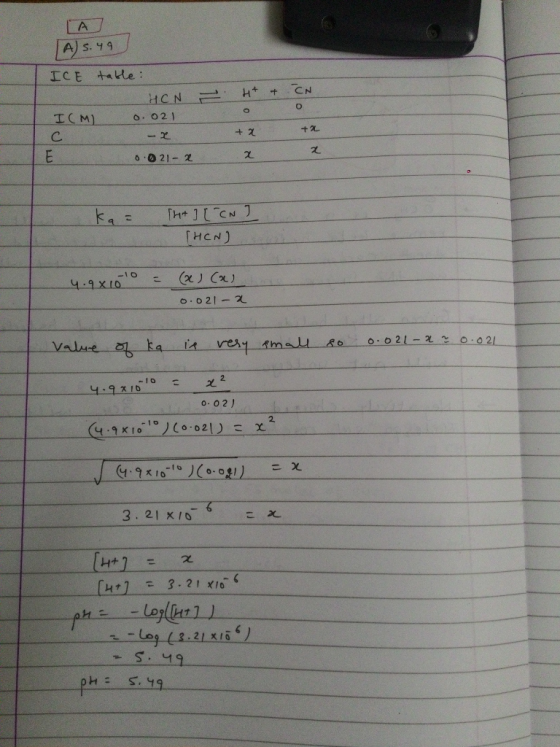 A
A) 5.49
ICE table:
HCN ⇌ H⁺ + ⁻CN
I(M) 0.021 0 0
C -x +x +x
E 0.021-x x x
Ka = [H+][⁻CN] / [HCN]
4.9×10⁻¹⁰ = (x)(x) / 0.021-x
Value of Ka is very small so 0.021-x ≈ 0.021
4.9×10⁻¹⁰ = x² / 0.021
(4.9×10⁻¹⁰)(0.021) = x²
√(4.9×10⁻¹⁰)(0.021) = x
3.21×10⁻⁶ = x
[H+] = x
[H+] = 3.21×10⁻⁶
pH = -log([H+])
= -log(3.21×10⁻⁶)
= 5.49
pH = 5.49